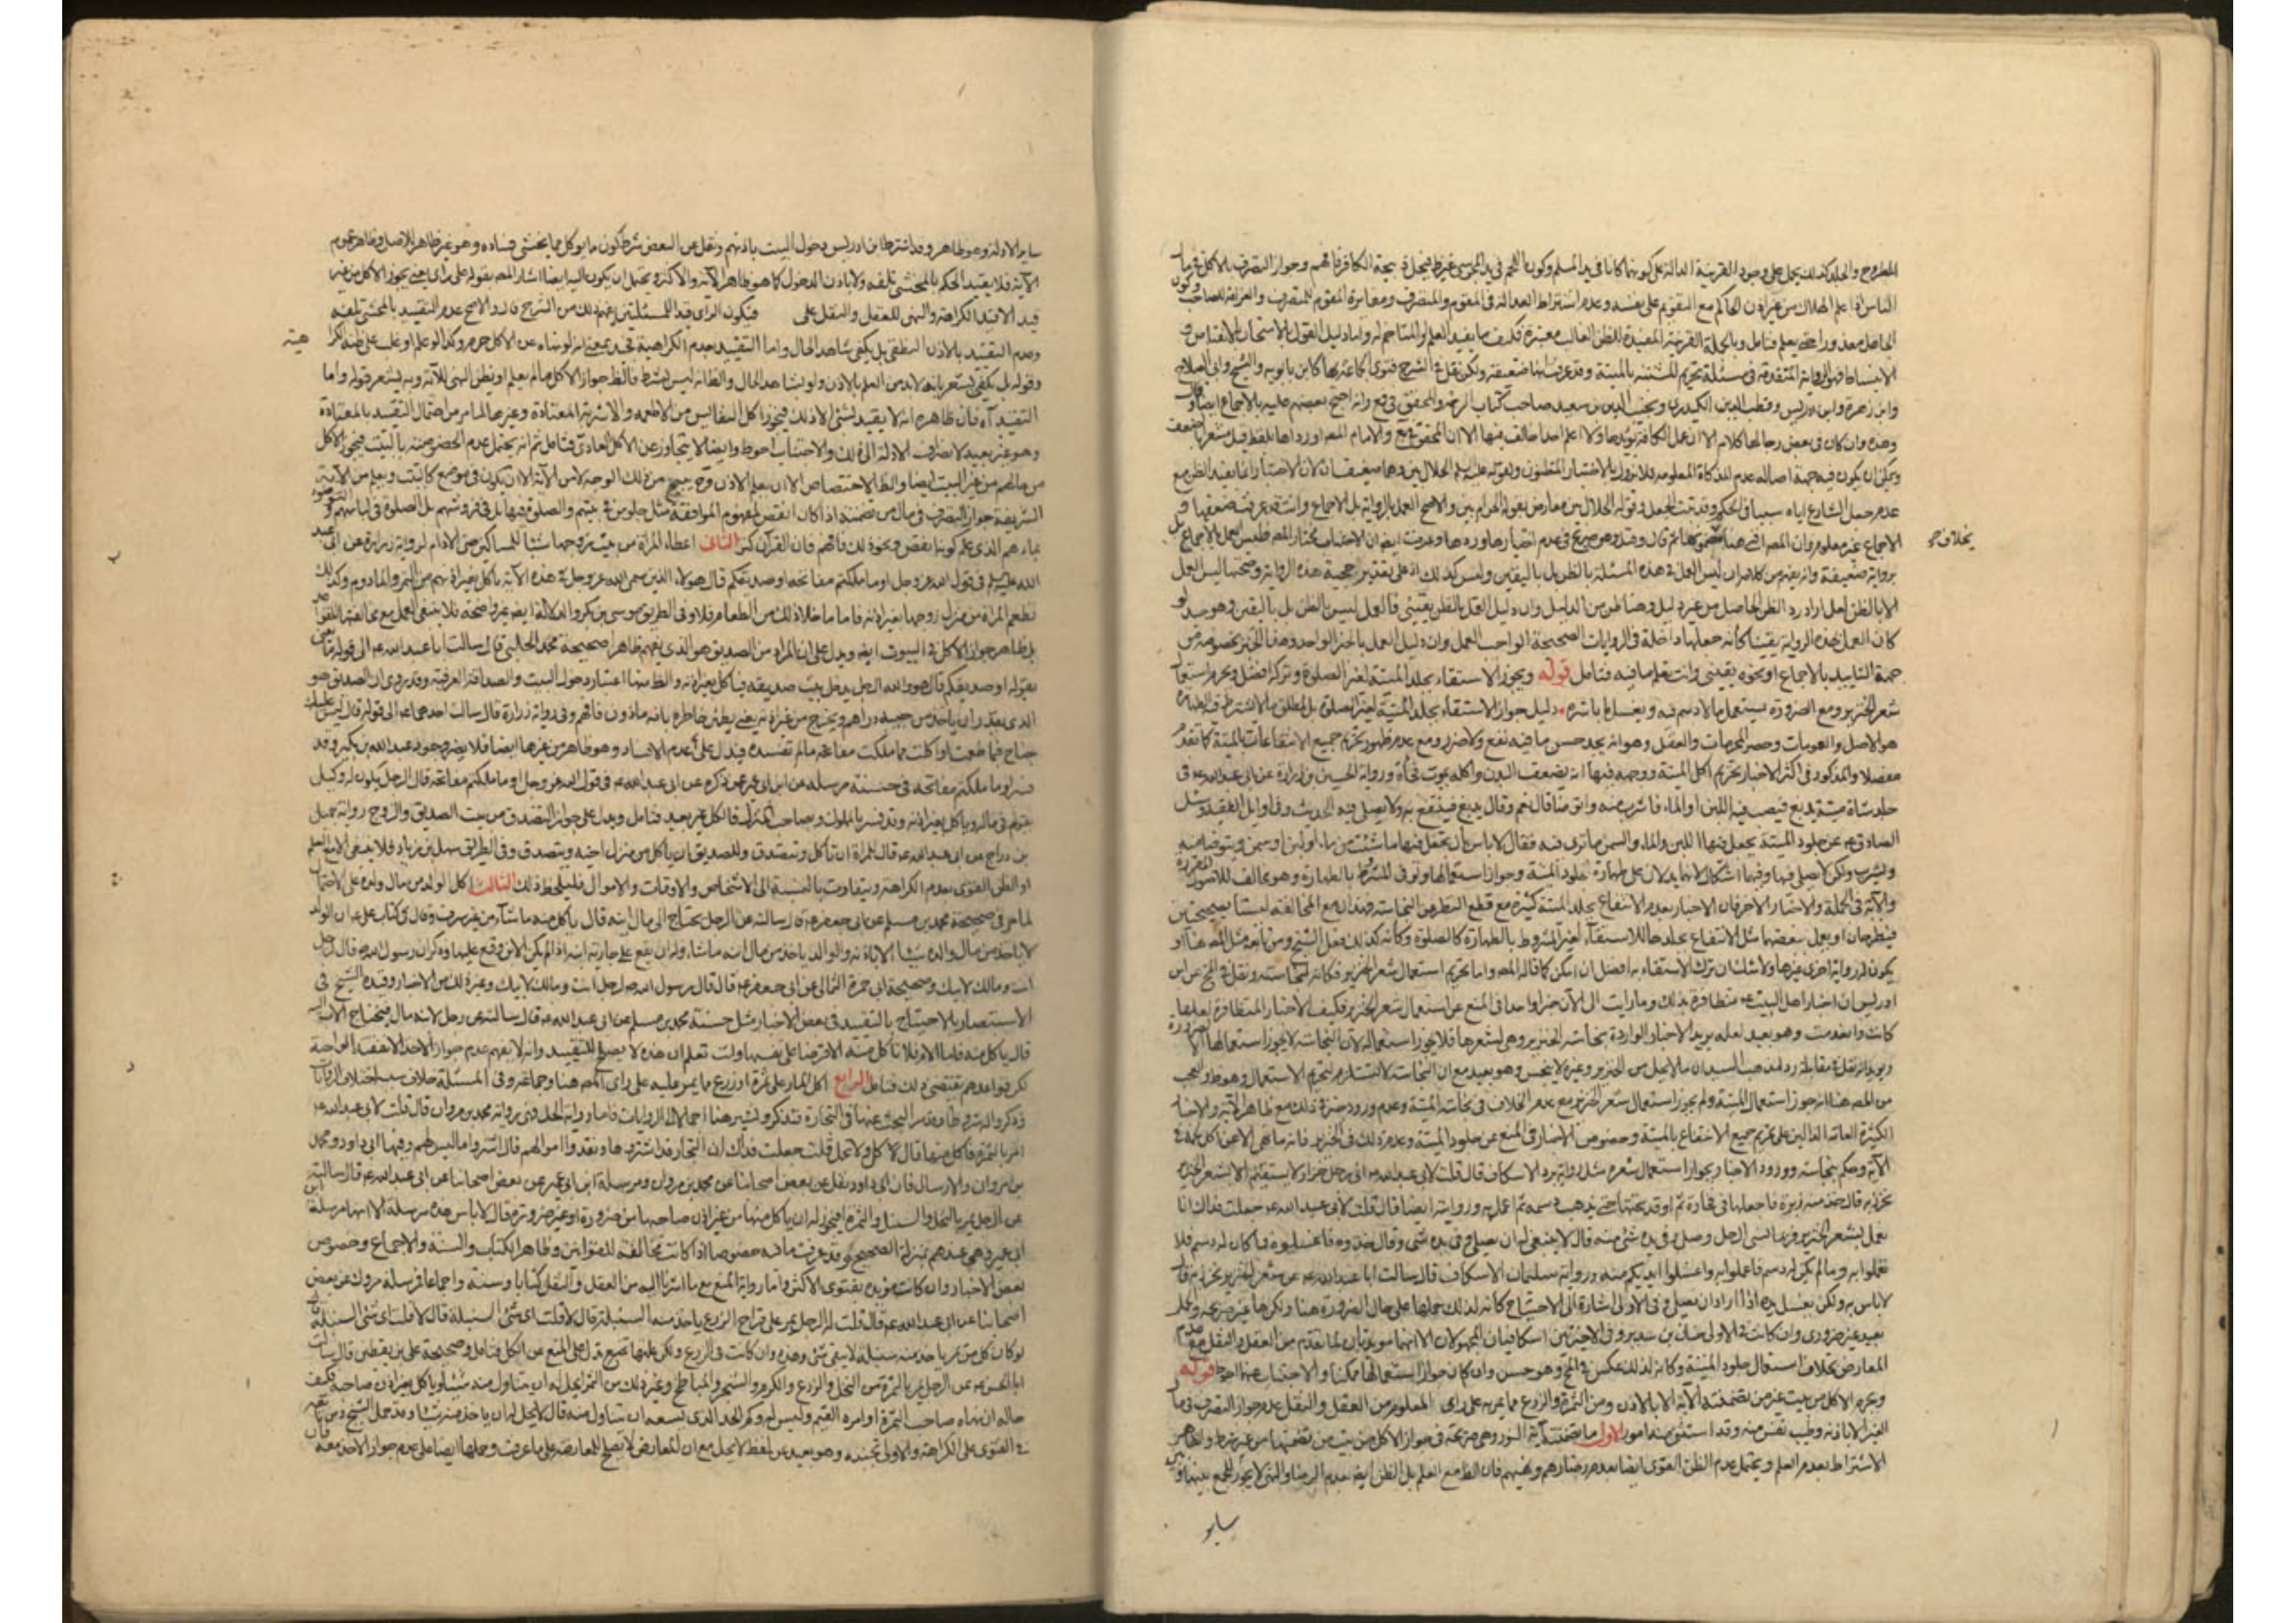 المطروح والجلد كذلك يحمل على وجود القرينة الدالة على كونهما كانا في يد المسلم وكون اللحم في يد المجوسي غير
الناس اذا علم الهلاك من غير اذن الحاكم مع التقويم على نفسه وعدم اشتراط العدالة في المقوم والمتصرف ومغايرة المقوم للمتصرف والغرامة للصاحب
فتامل وبالجملة القرينة المفيدة للظن الغالب معتبرة فكيف ما يفيد العلم واما دليل القول بالاستحباب
فهو الرواية المتقدمة في مسئلة تحريم المشتبه بالميتة وقد عرفت انها ضعيفة ولكن نقل في الشرح فتوى جماعة بها كابن بابويه والشيخ وابي الصلاح
وابن زهرة وابن ادريس وقطب الدين الكيدري ونجيب الدين بن سعيد صاحب كتاب والمحقق في فع وانه احتج بعضهم عليه بالاجماع
وحده وان كان في بعض رجالها كلام الا ان عمل الكافة يؤيدها ولا اعلم احدا خالف فيها الا ان المحقق في يع والامام المصنف اورداها بلفظ قيل مشعرا
ويمكن ان يكون فيه جهة اصالة عدم التذكاة المعلومة فلا يزول بالاختبار المظنون ولقوله عليه السلم الحلال بين وهما ضعيفان لان الاختبار انما يفيد الظن مع
عدم جعل الشارع اياه سببا في الحكم وقد ثبت الجعل وقوله الحلال بين معارض بقوله الحرام بين والاصح العمل بالرواية بل الاجماع وانت قد عرفت ضعفها
الاجماع غير معلوم وان المصنف
بخلافه
برواية ضعيفة وانه يفهم من كلامه ان ليس العمل في هذه المسئلة بالظن بل باليقين وليس كذلك اذ على تقدير حجية هذه الرواية وصحتها ليس العمل
الا بالظن لعل اراد رد الظن الحاصل من غير دليل وهنا ظن من الدليل وان دليل العمل بالظن يقيني فالعمل ليس بالظن بل باليقين وهو جيد لو
كان العمل بهذه الرواية يقينا كانه جعلها داخلة في الروايات الصحيحة الواجب العمل وان دليل العمل بالخبر الواحد وهذا الخبر بخصوصه من
جهة التاييد بالاجماع او نحوه يقيني وانت تعلم ما فيه فتامل قوله ويجوز الاستقاء بجلد الميتة لغير الصلوة وتركه افضل ويحرم استعمال
شعر الخنزير ومع الضرورة يستعمل ما لا دسم فيه ويغسل ما باشره دليل جواز الاستقاء بجلد الميتة لغير الصلوة بل لمطلق ما لا يشترط فيه الطهارة
هو الاصل والعمومات وحصر المحرمات والعقل وهو انه يجد حسن ما فيه نفع ولا ضرر ومع عدم ظهور تحريم جميع الانتفاعات بالميتة كما تقدم
مفصلا والمذكور في اكثر الاخبار تحريم اكل الميتة ووجهه فيها انه يضعف البدن واكله يموت فجأة ورواية الحسين بن زرارة عن ابي عبد الله عه في
جلد شاة ميتة يدبغ فيصب فيه اللبن او الماء فاشرب منه واتوضا قال نعم وقال يدبغ فينتفع به ولا يصلى فيه الحديث وفي اوايل الفقيه وسئل
الصادق عه عن جلود الميتة يجعل فيها اللبن والماء والسمن ما ترى فيه فقال لا باس بان تجعل فيها ما شئت من ماء او لبن او سمن ويتوضا منه
ويشرب ولكن لا يصلى فيها وفيها اشكال لانها يدلان على طهارة جلود الميتة وجواز استعمالها ولو في المشروط بالطهارة وهو مخالف للاصول المقررة
والآية في الجملة والاخبار الاخر فان الاخبار بعدم الانتفاع بجلد الميتة كثيرة مع قطع النظر عن النجاسة فهذان مع المخالفة ليستا بصحيحتين
فيطرحان او يعمل ببعضهما مثل الانتفاع بجلدها للاستقاء لغير المشروط بالطهارة كالصلوة وكانه كذلك فعل الشيخ ومن تابعه مثل المصنف هنا او
يكون له رواية اخرى غيرها ولا شك ان ترك الاستقاء به افضل ان امكن كما قاله المصنف واما تحريم استعمال شعر الخنزير فكانه لنجاسته ونقل في المخ عن ابن
ادريس ان اخبار اهل البيت عه متظافرة بذلك وما رايت الى الآن خبرا واحدا في المنع عن استعمال شعر الخنزير فكيف الاخبار المتظافرة لعلها
كانت وانعدمت وهو بعيد لعله يريد الاخبار الواردة بنجاسة الخنزير وهي تشعر بها فلا يجوز استعماله لان النجاسة لا يجوز استعمالها الا ضرورة
ويؤيد انه نقل في مقابله رد لمذهب السيد ان ما لا تحل من الخنزير وغيره لا ينجس وهو بعيد مع ان النجاسة لا تستلزم تحريم الاستعمال وهو ظ والعجب
من المصنف هنا انه جوز استعمال الميتة ولم يجوز استعمال شعر الخنزير مع عدم الخلاف في نجاسة الميتة وعدم ورود خبر في ذلك مع ظاهر الآية والاخبار
الكثيرة العامة الدالين على تحريم جميع الانتفاع بالميتة وخصوص الاخبار في المنع عن جلود الميتة وعدم ذلك في الخنزير فانه ما نهي الا عن اكل لحمه في
الآية وحكم بنجاسته وورود الاخبار بجواز استعمال شعره مثل رواية برد الاسكاف قال قلت لابي عبد الله عه اني رجل خراز لا يستقيم الا شعر الخنزير
نخرز به قال خذ منه وبرة فاجعلها في فخارة ثم اوقد تحتها حتى يذهب دسمه ثم اعمل به وروايته ايضا قال قلت لابي عبد الله عه جعلت فداك انا
نعمل بشعر الخنزير فربما نسي الرجل وصلى وفي يده شئ منه قال لا ينبغي له ان يصلي وفي يده شئ وقال خذوه فاغسلوه فما كان له دسم فلا
تعملوا به وما لم يكن له دسم فاعملوا به واغسلوا ايديكم منه ورواية سليمان الاسكاف قال سالت ابا عبد الله عه عن شعر الخنزير نخرز به قال
لا باس به ولكن يغسل يده اذا اراد ان يصلي وفي الاولى اشارة الى الاحتياج كانه لذلك حملها على حال الضرورة هنا ولكنها غير صريحة
بعيد غير ضروري وان كانت في الاولى حنان بن سدير وفي الاخيرتين اسكافيان المجهولان الا انهما مؤيدتان لما تقدم من العقل والنقل مع عدم
المعارض بخلاف استعمال جلود الميتة وكانه لذلك عكس في المخ وهو حسن وان كان جواز استعمالها ممكنا والاحتياط منهما احوط قوله
ويحرم الاكل من بيت غير من تضمنته الآية الا بالاذن ومن الثمرة والزرع مما يمر به على راى المعلوم من العقل والنقل عدم جواز التصرف في مال
الغير الا باذنه وطيب نفس منه وقد استثنى منه امور الاول ما تضمنته آية النور وهي صريحة في جواز الاكل من بيت من تضمنها من غير شرط وظاهر
الاشتراط بعدم العلم ويحتمل عدم الظن القوى ايضا بعدم رضاهم ونهيهم فان الظ مع العلم بل الظن ايضا بعدم الرضا والنهي لا يجوز للجمع بينها وبين
ساير
ساير الادلة وهو ظاهر وقد اشترط ابن ادريس دخول البيت باذنهم ونقل عن البعض شرط كون ما يؤكل مما يخشى فساده وهو غير ظاهر للاصل وظاهر عموم
الآية فلا يقيد الحكم بالمخشي تلفه ولا باذن الدخول كما هو ظاهر الآية والاكثر ويحتمل ان يكون اليه ايضا اشار المصنف بقوله على راى يعني يجوز الاكل من غير
قيد الا قيد الكراهة والنهي للعقل والنقل على فيكون الراى قيد المسئلتين يفهم ذلك من الشرح قال والاصح عدم التقييد بالمخشي تلفه
وعدم التقييد بالاذن النطقي بل يكفي شاهد الحال واما التقييد بعدم الكراهية فجيد بمعنى انه لو نهاه عن الاكل حرم وكذا لو علم او غلب على ظنه الكراهية
وقوله بل يكفي يشعر بانه لا بد من العلم بالاذن ولو بشاهد الحال والظ انه ليس بشرط فالظ جواز الاكل ما لم يعلم او يظن النهي للآية وبه يشعر قوله واما
التقييد آه فان ظاهره انه لا يقيد بشئ الا ذلك فيجوز اكل النفايس من الاطعمة والاشربة المعتادة وغيرها لما مر من احتمال التقييد بالمعتادة
وهو غير بعيد لانصراف الادلة الى ذلك والاجتناب احوط وايضا لا يتجاوز عن الاكل العادي فتامل ثم انه يحتمل عدم الخصوصية بالبيت فيجوز الاكل
من مالهم من غير البيت ايضا والظ الاختصاص الا ان يعلم الاذن من ذلك الوجه لا من الآية الا ان يكون في موضع كالبيت ويعلم من الآية
الشريفة جواز التصرف في مال من تضمنته اذا كان انقص لمفهوم الموافقة مثل جلوس في بيتهم والصلوة فيها بل في فروشهم بل الصلوة في لباسهم والتوضوء
بماءهم الذي علم كونها انقص ونحوه ذلك فافهم فان القرآن كنز الثانى اعطاء المراة من بيت زوجها شيئا للمساكين من الادام لرواية زرارة عن ابي عبد
الله عليه السلم في قول الله عز وجل او ما ملكتم مفاتحه او صديقكم قال هؤلاء الذين سمى الله عز وجل في هذه الآية ياكل بغير اذنهم من التمر والمادوم وكذلك
تطعم المراة من منزل زوجها بغير اذنه فاما ما خلا ذلك من الطعام فلا وفي الطريق موسى بن بكر والدلالة ايضا غير واضحة فلا ينبغي العمل مع مخالفته
بل ظاهر جواز الاكل في البيوت ايضا ويدل على ان المراد من الصديق هو الذي يفهم ظاهرا صحيحة محمد الحلبي قال سالت ابا عبد الله عه الى قوله ما يعنى
بقوله او صديقكم قال هو والله الرجل يدخل بيت صديقه فياكل بغير اذنه والظ منها اعتبار دخول البيت والصداقة العرفية وقد روي ان الصديق هو
الذي يقدر ان ياخذ من جيبه دراهم ويخرج من غير اذنه يعني يطمئن خاطره بانه ماذون فافهم وفي رواية زرارة قال سالت احدهما عه الى قوله قال ليس عليك
جناح فيما طعمت او اكلت مما ملكت مفاتحه ما لم تفسده فيدل على عدم الافساد وهو ظاهر من غيرها ايضا فلا يضر وجود عبد الله بن بكير وقد
فسر او ما ملكتم مفاتحه في حسنة مرسلة عن ابن ابي عمير عمن ذكره عن ابي عبد الله عه في قول الله عز وجل او ما ملكتم مفاتحه قال الرجل يكون له وكيل
يقوم في ماله وياكل بغير اذنه وقد فسر بالمملوك وبصاحب المنزل فالكل غير بعيد فتامل ويدل على جواز التصدق من بيت الصديق والزوج رواية جميل
بن دراج عن ابي عبد الله عه قال للمراة ان تاكل وتتصدق وللصديق ان ياكل من منزل اخيه ويتصدق وفي الطريق سهل بن زياد فلا ينبغي الا مع العلم
او الظن القوى بعدم الكراهة ويتفاوت بالنسبة الى الاشخاص والاوقات والاموال فليلحظ ذلك الثالث اكل الوالد من مال ولده على الاحتياج
لما مر في صحيحة محمد بن مسلم عن ابي جعفر عه قال سالته عن الرجل يحتاج الى مال ابنه قال ياكل منه ما شاء من غير سرف وقال في كتاب على عه ان الولد
لا ياخذ من مال والده شيئا الا باذنه والوالد ياخذ من مال ابنه ما شاء وله ان يقع على جارية ابنه اذا لم يكن الابن وقع عليها وذكر ان رسول الله ص قال لرجل
انت ومالك لابيك وصحيحة ابي حمزة الثمالى عن ابي جعفر عه قال قال رسول الله ص لرجل انت ومالك لابيك وغير ذلك من الاخبار وقيده الشيخ في
الاستبصار بالاحتياج بالتقييد في بعض الاخبار مثل حسنة محمد بن مسلم عن ابي عبد الله عه قال سالته عن رجل لابنه مال فيحتاج الاب اليه
قال ياكل منه فاما الام فلا تاكل منه الا قرضا على نفسها وانت تعلم ان هذه لا يصلح للتقييد وانه لا يفهم عدم جواز الاخذ الا نفقة الواجبة
لكن قواعدهم يقتضى ذلك فتامل الرابع اكل المار على ثمرة او زرع ما يمر عليه على راى المصنف هنا وجماعة وفي المسئلة خلاف سبب اختلاف الروايات
وذكروا له شروطا وقد مر البحث عنها في التجارة فتذكر ولنشر هنا اجمالا الى الروايات فاما رواية الحل فهي رواية محمد بن مروان قال قلت لابي عبد الله عه
امر بالثمرة فاكل منها قال لا كل ولا تحمل قلت جعلت فداك ان التجار قد اشتروها ونقدوا اموالهم قال اشتروا ما ليس لهم وفيها ابي داود ومحمد
بن مروان والارسال فان ابى داود نقل عن بعض اصحابنا عن محمد بن مروان ومرسلة ابن ابي عمير عن بعض اصحابنا عن ابي عبد الله عه قال سالته
عن الرجل يمر بالنخل والسنبل والثمرة فيجوز له ان ياكل منها من غير اذن صاحبها من ضرورة او غير ضرورة قال لا باس هذه مرسلة الا انها مرسلة ابن
ابي عمير وهي عندهم بمنزلة الصحيح وقد عرفت ما فيه خصوصا اذا كانت مخالفة للقوانين وظاهر الكتاب والسنة والاجماع وخصوص
بعض الاخبار وان كانت مؤيدة بفتوى الاكثر واما رواية المنع مع ما اشرنا اليه من العقل والنقل كتابا وسنة واجماعا فمرسلة مروك عن بعض
اصحابنا عن ابي عبد الله عه قال قلت له الرجل يمر على قراح الزرع ياخذ منه السنبلة قال لا قلت اى شئ السنبلة قال
لو كان كل من يمر ياخذ منه سنبلة لا يبقى شئ وهذه وان كانت في الزرع ولكن علتها تعم تدل على المنع عن الكل فتامل وصحيحة على بن يقطين قال سالت
ابا الحسن عه عن الرجل يمر بالثمرة من النخل والزرع والكرم والشجر والمباطخ وغير ذلك من الثمر ايحل له ان يتناول منه شيئا وياكل بغير اذن صاحبه وكيف
حاله ان نهاه صاحب الثمرة او امره القيم وليس له وكم الحد الذي يسعه ان يتناول منه قال لا يحل له ان ياخذ منه شيئا وقد حمل الشيخ
في الفتوى على الكراهة والاولى تجنبه وهو بعيد عن لفظ لا يحل مع ان المعارض لا يصلح للمعارضة على ما عرفت وحملها ايضا على عدم جواز الاخذ معه